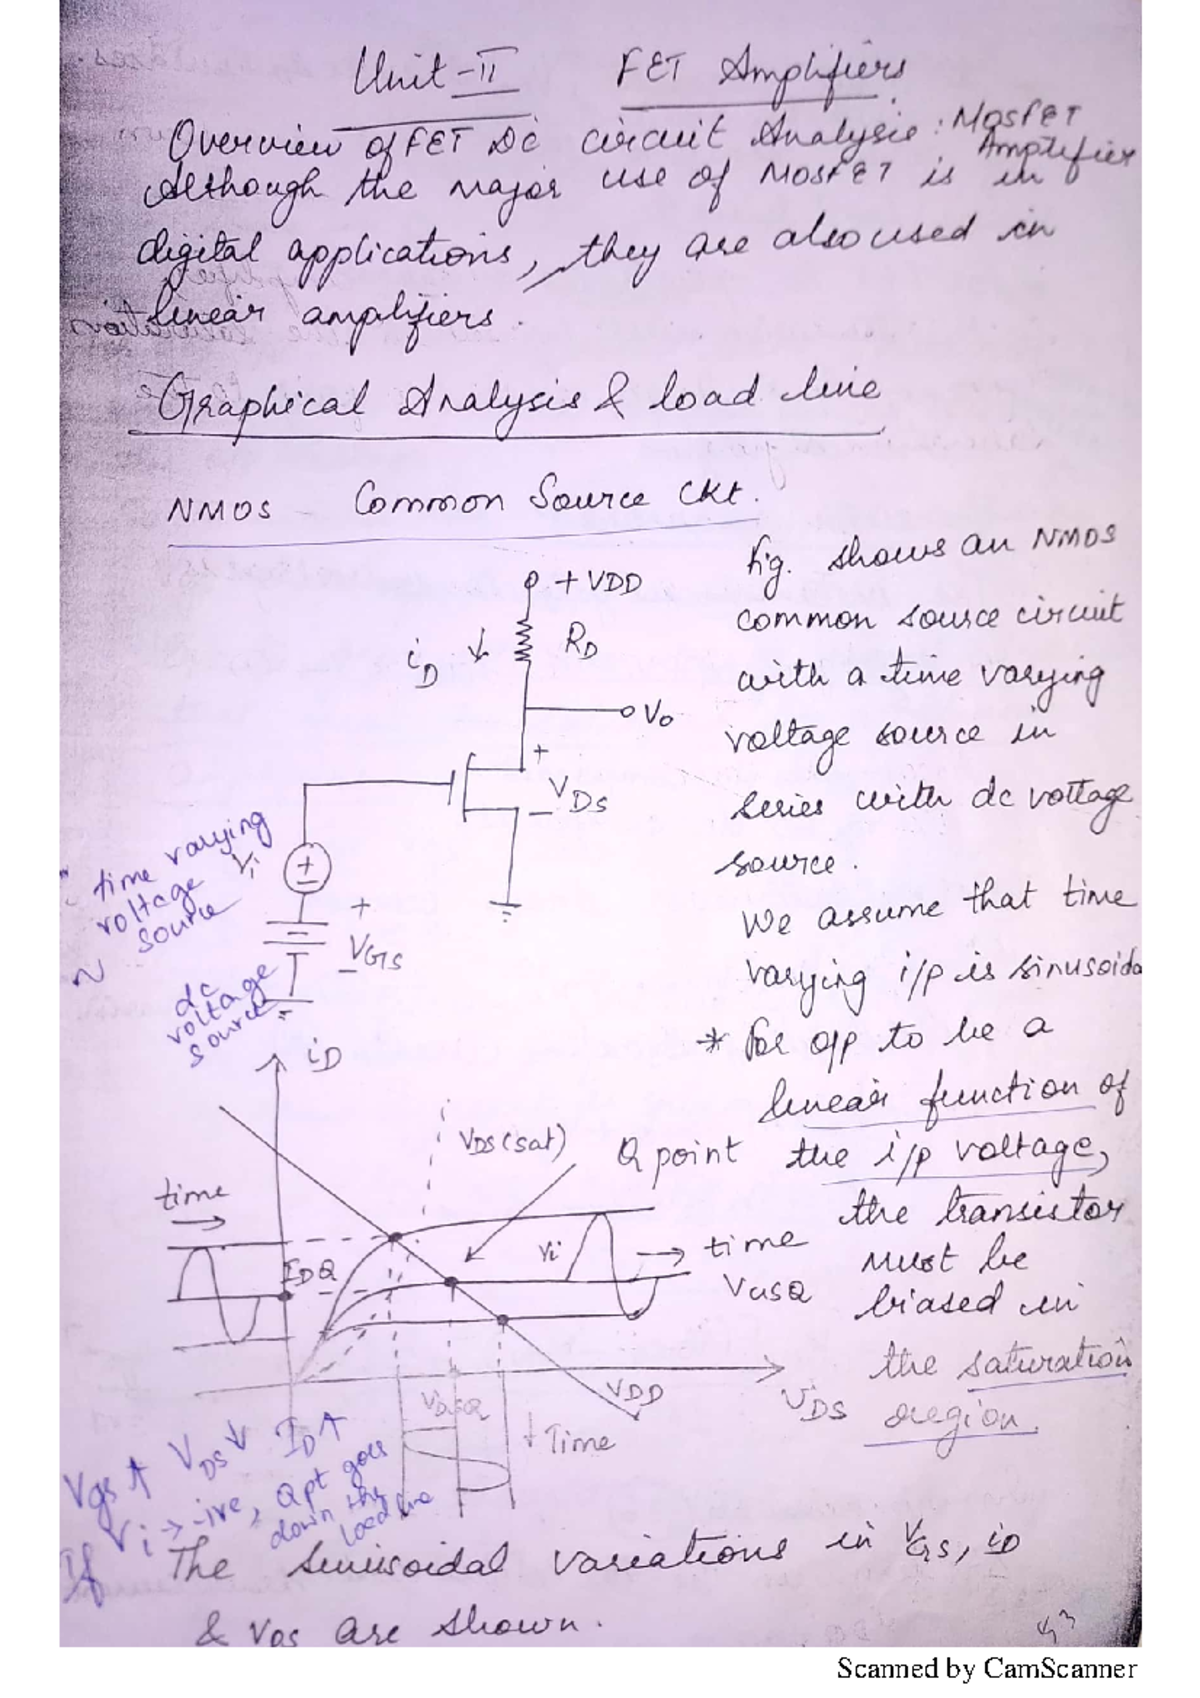 Unit-II FET Amplifiers
Overview of FET DC circuit Analysis: MOSFET Amplifier
Although the major use of MOSFET is in
digital applications, they are also used in
linear amplifiers.
Graphical Analysis & load line
NMOS Common Source Ckt.
fig. shows an NMOS
common source circuit
with a time varying
voltage source in
series with dc voltage
source.
We assume that time
varying i/p is sinusoida
* For o/p to be a
linear function of
the i/p voltage,
the transistor
must be
biased in
the saturation
region.
+ VDD
iD
RD
Vo
+
VDS
−
time varying
voltage Vi
source
~
+
+
VGS
−
dc
voltage
source
iD
VDS(sat)
Q point
time
IDQ
Vi
time
VGSQ
VDSQ
VDD
VDS
Time
Vgs ↑ VDS ↓ ID ↑
If Vi → -ive, Q pt goes
down the
load line
The sinusoidal variations in VGS, iD
& VDS are shown.
Scanned by CamScanner